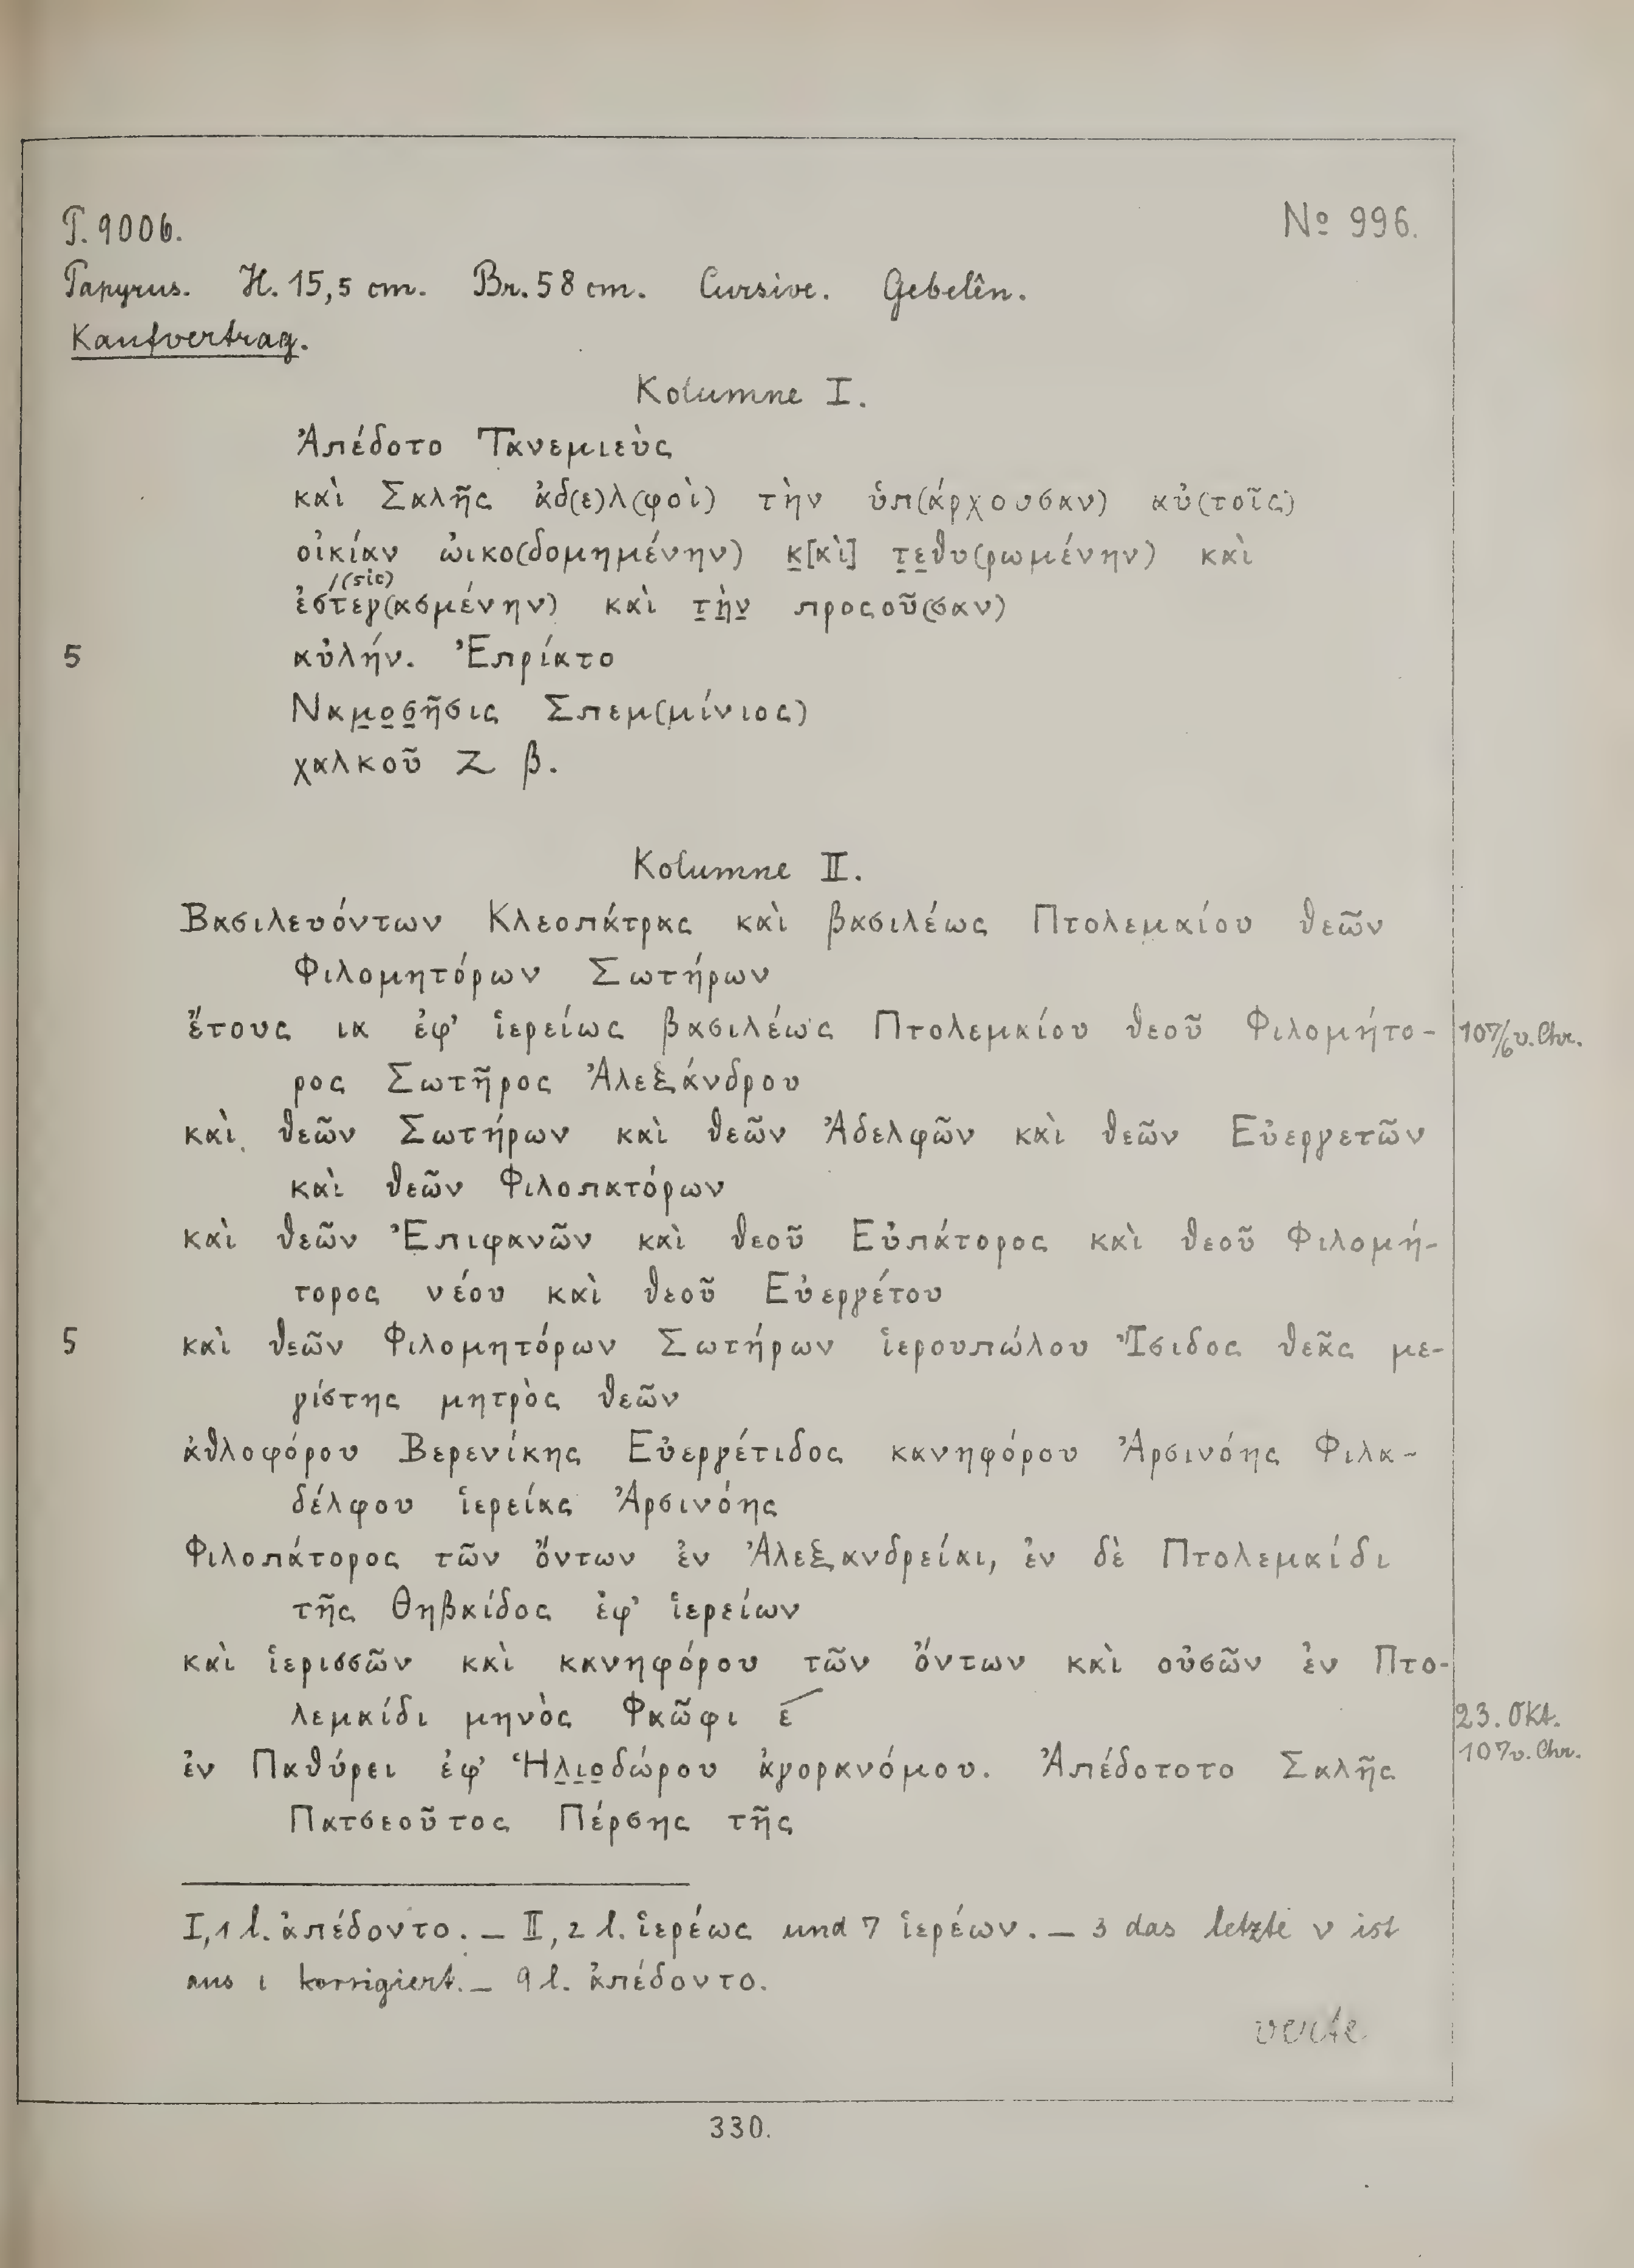 P. 9006. No 996.
Papyrus. H. 15,5 cm. Br. 58 cm. Cursive. Gebelên.
Kaufvertrag.
Kolumne I.
Ἀπέδοτο Τανεμιεὺς
καὶ Σαλῆς ἀδ(ε)λ(φοὶ) τὴν ὑπ(άρχουσαν) αὐ(τοῖς)
οἰκίαν ᾠκο(δομημένην) κ̣[αὶ] τ̣ε̣θυ(ρωμένην) καὶ
/(sic)
ἐστεγ(ασμένην) καὶ τ̣ὴ̣ν̣ προςοῦ(σαν)
5 αὐλήν. Ἐπρίατο
Ναμ̣ο̣σ̣ῆσις Σπεμ(μίνιος)
χαλκοῦ Ζ β.
Kolumne II.
Βασιλευόντων Κλεοπάτρας καὶ βασιλέως Πτολεμαίου θεῶν
Φιλομητόρων Σωτήρων
ἔτους ια ἐφ’ ἱερείως βασιλέως Πτολεμαίου θεοῦ Φιλομήτο- 107/6 v. Chr.
ρος Σωτῆρος Ἀλεξάνδρου
καὶ θεῶν Σωτήρων καὶ θεῶν Ἀδελφῶν καὶ θεῶν Εὐεργετῶν
καὶ θεῶν Φιλοπατόρων
καὶ θεῶν Ἐπιφανῶν καὶ θεοῦ Εὐπάτορος καὶ θεοῦ Φιλομή-
τορος νέου καὶ θεοῦ Εὐεργέτου
5 καὶ θεῶν Φιλομητόρων Σωτήρων ἱερουπώλου Ἴσιδος θεᾶς με-
γίστης μητρὸς θεῶν
ἀθλοφόρου Βερενίκης Εὐεργέτιδος κανηφόρου Ἀρσινόης Φιλα-
δέλφου ἱερείας Ἀρσινόης
Φιλοπάτορος τῶν ὄντων ἐν Ἀλεξανδρείαι, ἐν δὲ Πτολεμαίδι
τῆς Θηβαίδος ἐφ’ ἱερείων
καὶ ἱερισσῶν καὶ κανηφόρου τῶν ὄντων καὶ οὐσῶν ἐν Πτο-
λεμαίδι μηνὸς Φαῶφι ε̄ 23. Okt.
107 v. Chr.
ἐν Παθύρει ἐφ’ Ἡλ̣ι̣ο̣δώρου ἀγορανόμου. Ἀπέδοτοτο Σαλῆς
Πατσεοῦτος Πέρσης τῆς
I,1 l. ἀπέδοντο. – II, 2 l. ἱερέως und 7 ἱερέων. – 3 das letzte ν ist
aus ι korrigiert. – 9 l. ἀπέδοντο.
verte
330.